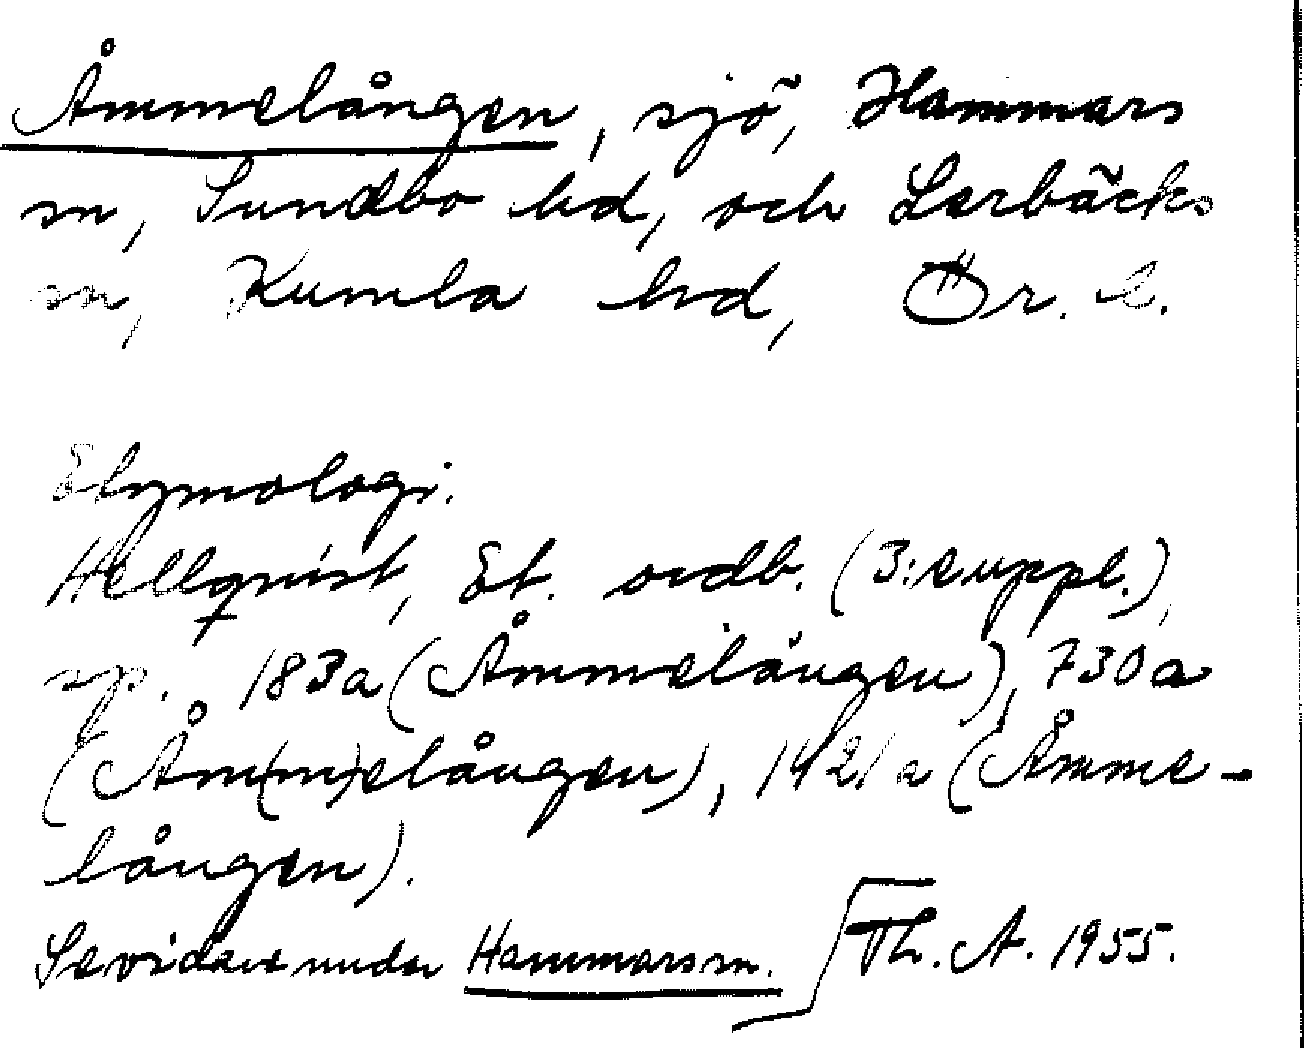 Åmmelången, sjö, Hammars
sn, Sundbo hd, och Lerbäcks
sn, Kumla hd, Ör. l.
Etymologi.
Hellquist, Et. ordb. (3:e uppl.),
sp. 183a (Åmmelången), 730a
(Åm(m)elången), 1421a (Åmme-
lången).
Se vidare under Hammars sn. Th. A. 1955.